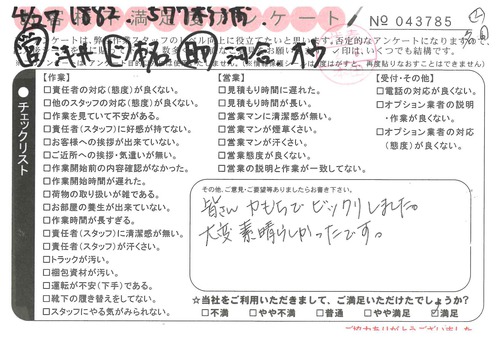 お客様満足度アンケート!
No 043785
チェックリスト
【作業】
□責任者の対応(態度)が良くない。
□他のスタッフの対応(態度)が良くない。
□作業を見ていて不安がある。
□責任者(スタッフ)に好感が持てない。
□お客様への挨拶が出来ていない。
□ご近所への挨拶・気遣いが無い。
□作業開始前の内容確認がなかった。
□作業開始時間が遅れた。
□荷物の取り扱いが雑である。
□お部屋の養生が出来ていない。
□作業時間が長すぎる。
□責任者(スタッフ)に清潔感が無い。
□責任者(スタッフ)が汗くさい。
□トラックが汚い。
□梱包資材が汚い。
□運転が不安(下手)である。
□靴下の履き替えをしてない。
□スタッフにやる気がみられない。
【営業】
□見積もり時間に遅れた。
□見積もり時間が長い。
□営業マンに清潔感が無い。
□営業マンが煙草くさい。
□営業マンが汗くさい。
□営業態度が良くない。
□営業の説明と作業が一致してない。
【受付・その他】
□電話の対応が良くない。
□オプション業者の説明
・作業が良くない。
□オプション業者の対応
(態度)が良くない。
その他、ご意見・ご要望等ありましたらお書き下さい。
皆さん力もちでビックリしました。
大変素晴らしかったです。
☆当社をご利用いただきまして、ご満足いただけてしょうか?
□不満 □やや不満 □普通 □やや満足 ☑満足
ご協力ありがとうございました